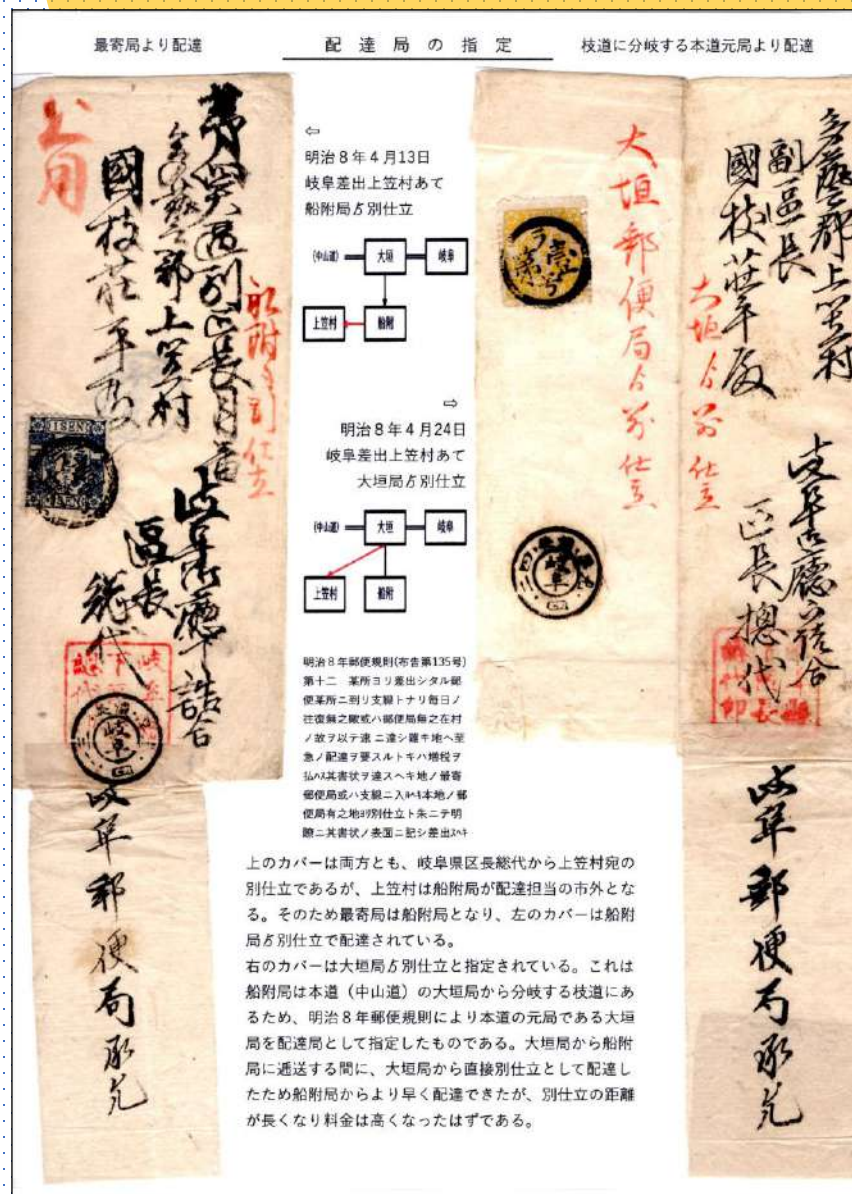 最寄局より配達
配達局の指定
枝道に分岐する本道元局より配達
⇦
明治8年4月13日
岐阜差出上笠村あて
船附局ゟ別仕立
(中山道) 大垣 岐阜
上笠村 船附
⇨
明治8年4月24日
岐阜差出上笠村あて
大垣局ゟ別仕立
(中山道) 大垣 岐阜
上笠村 船附
明治8年郵便規則(布告第135号)
第十二 某所ヨリ差出シタル郵
便某所ニ到リ支線トナリ毎日ノ
往復無之歟或ハ郵便局無之在村
ノ故ヲ以テ速ニ達シ難キ地ヘ至
急ノ配達ヲ要スルトキハ増税ヲ
払ハヽ其書状ヲ達スヘキ地ノ最寄
郵便局或ハ支線ニ入ルヘキ本地ノ郵
便局有之地ヨリ別仕立ト朱ニテ明
瞭ニ其書状ノ表面ニ記シ差出スヘキ
上のカバーは両方とも、岐阜県区長総代から上笠村宛の
別仕立であるが、上笠村は船附局が配達担当の市外とな
る。そのため最寄局は船附局となり、左のカバーは船附
局ゟ別仕立で配達されている。
右のカバーは大垣局ゟ別仕立と指定されている。これは
船附局は本道（中山道）の大垣局から分岐する枝道にあ
るため、明治8年郵便規則により本道の元局である大垣
局を配達局として指定したものである。大垣局から船附
局に逓送する間に、大垣局から直接別仕立として配達し
たため船附局からより早く配達できたが、別仕立の距離
が長くなり料金は高くなったはずである。
多藝郡上笠村
副區長
國枝荘平殿
大垣ゟ別仕立
岐阜
區長總代
岐阜郵便局承允
大垣郵便局ゟ別仕立
岐阜
船附ゟ別仕立
多藝郡上笠村
國枝荘平殿
區長
總代
岐阜
岐阜郵便局承允